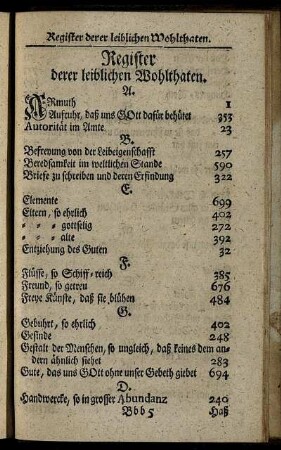 Register derer leiblichen Wohlthaten.
Register
derer leiblichen Wohlthaten.
A.
ARmuth 1
Aufruhr, daß uns GOtt dafür behütet 353
Autorität im Amte 23
B.
Befreyung von der Leibeigenschafft 257
Beredsamkeit im weltlichen Stande 590
Briefe zu schreiben und deren Erfindung 322
E.
Elemente 699
Eltern, so ehrlich 402
= = = gottselig 272
= = = alte 392
Entziehung des Guten 32
F.
Flüsse, so Schiff-reich 385
Freund, so getreu 676
Freye Künste, daß sie blühen 484
G.
Gebuhrt, so ehrlich 402
Gesinde 248
Gestalt der Menschen, so ungleich, daß keines dem an-
dern ähnlich siehet 283
Gute, das uns GOtt ohne unser Gebeth giebet 694
D.
Handwercke, so in grosser Abundanz 240
Bbb 5 Haß